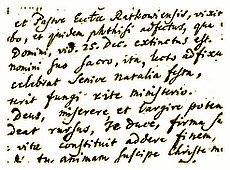 et Pastor Ecclae Ratkowiensis, vixit
bo, et quidem phthisi adfectus, que
Domini, vid. 25. Dec. extinctus est.
nomini suo sacro, ita, lecto adfixu
celebrat senior natalia festa,
terit fungi rite ministerio.
Deus, miserere et largire poten
deat rursus, Te duce, firma
vitae constituit addere finem
tu, animam suscipe Christe m